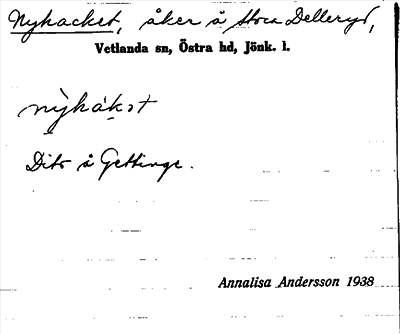 Nyhacket, åker å Stora Delleryd,
Vetlanda sn, Östra hd, Jönk. l.
nỳhákət
Dito å Gettinge.
Annalisa Andersson 1938